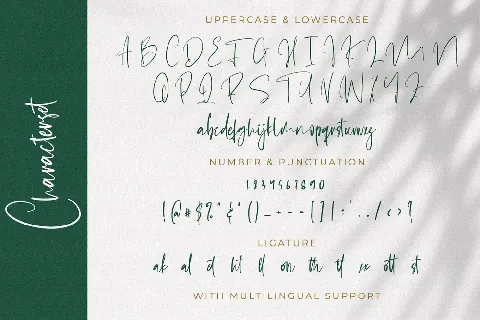 Characterset
UPPERCASE & LOWERCASE
A B C D E F G H I J K L M N
O P Q R S T U V W X Y Z
abcdefghijklmnopqrstuvwxyz
NUMBER & PUNCTUATION
1 2 3 4 5 6 7 8 9 0
! @ # $ % ^ & * ( ) _ - + = [ ] | : ' , . / < > ?
LIGATURE
ak al it ll on th tf ex ott st
WITH MULTILINGUAL SUPPORT